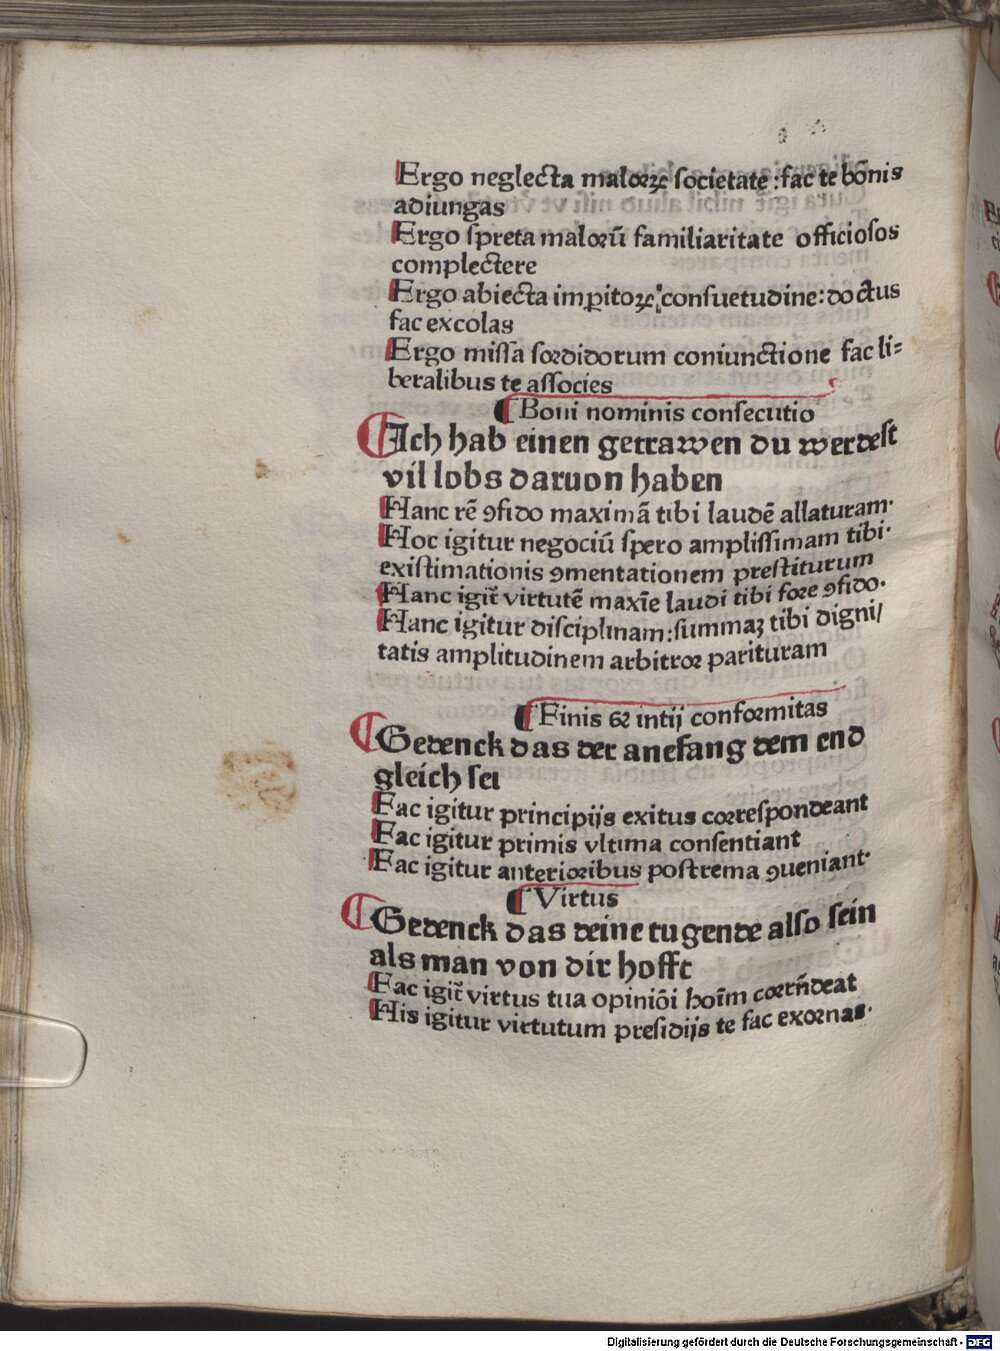 Ergo neglecta maloꝝ societate : fac te bōnis
adiungas
Ergo spreta malorū familiaritate officiosos
complectere
Ergo abiecta imꝑitoꝝ consuetudine: doctus
fac excolas
Ergo missa sordidorum coniunctione fac li⸗
beralibus te associes
¶ Boni nominis consecutio
Ich hab einen getrawen du werdest
vil lobs daruon haben
Hanc rē ꝯfido maximā tibi laudē allaturam·
Hoc igitur negociū spero amplissimam tibi·
existimationis ꝯmentationem prestiturum
Hanc igit̄ virtutē maxīe laudi tibi fore ꝯfido·
Hanc igitur disciplinam: summaꝫ tibi digni/
tatis amplitudinem arbitror parituram
¶ Finis et intij conformitas
Gedenck das der anefang dem end
gleich sei
Fac igitur principijs exitus correspondeant
Fac igitur primis vltima consentiant
Fac igitur anterioribus postrema ꝯueniant·
¶ Virtus
Gedenck das deine tugende also sein
als man von dir hofft
Fac igit̄ virtus tua opiniōi hoīm corrn̄deat
His igitur virtutum presidijs te fac exornas·
Digitalisierung gefördert durch die Deutsche Forschungsgemeinschaft - DFG